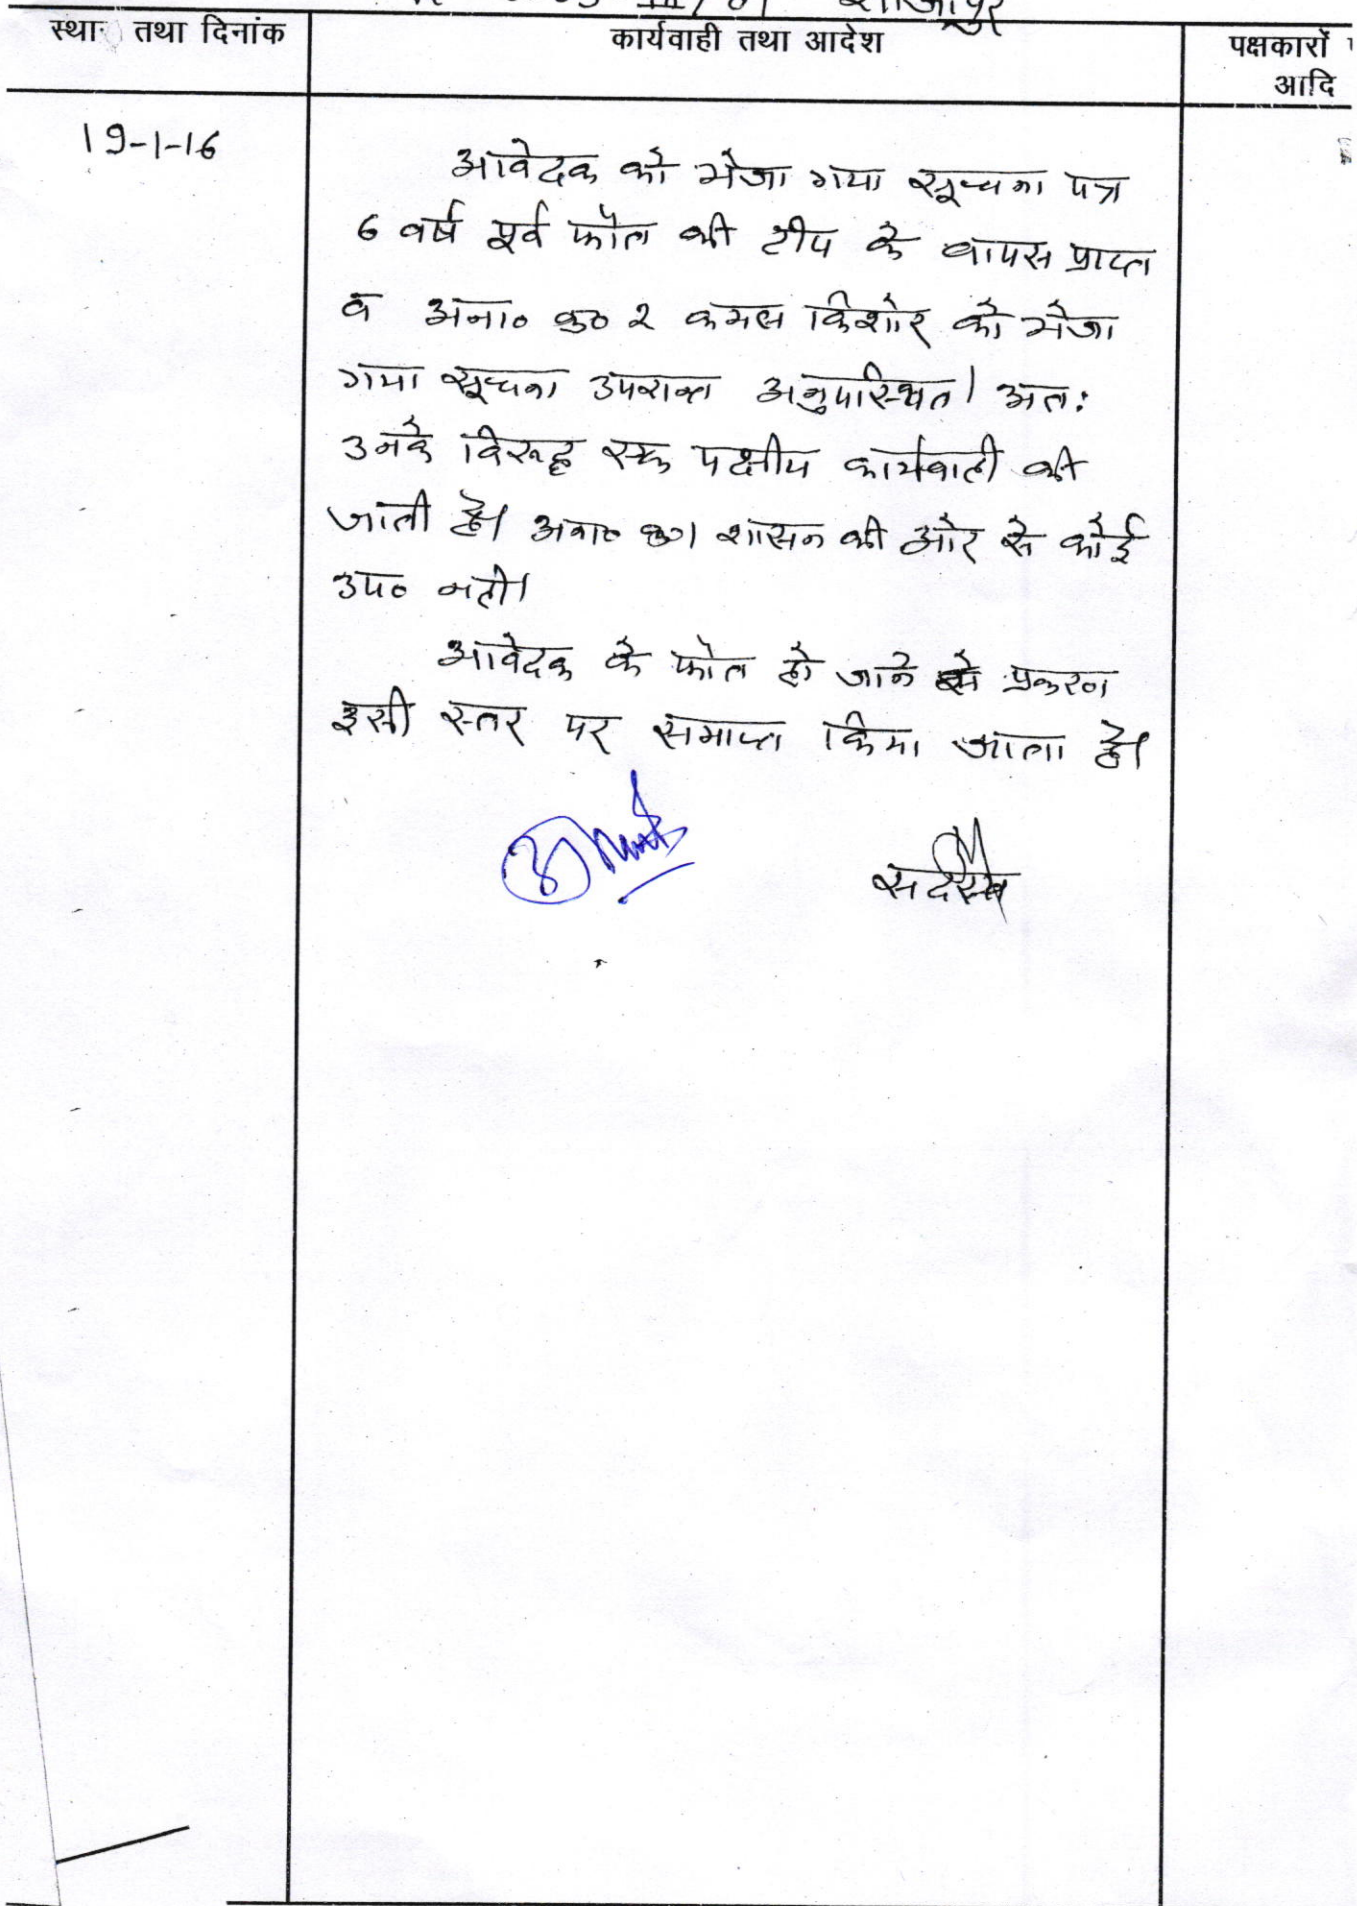 शाजापुर
स्थान तथा दिनांक
कार्यवाही तथा आदेश
पक्षकारों
आदि
19-1-16
आवेदक को भेजा गया सूचना पत्र
6 वर्ष पूर्व फौत की टीप के वापस प्राप्त
व अना० क्र० 2 कमल किशोर को भेजा
गया सूचना उपरान्त अनुपस्थित। अतः
उनके विरूद्ध एक पक्षीय कार्यवाही की
जाती है। अना० क्र०1 शासन की ओर से कोई
उप० नही।
आवेदक के फौत हो जाने से प्रकरण
इसी स्तर पर समाप्त किया जाता है।
सदस्य